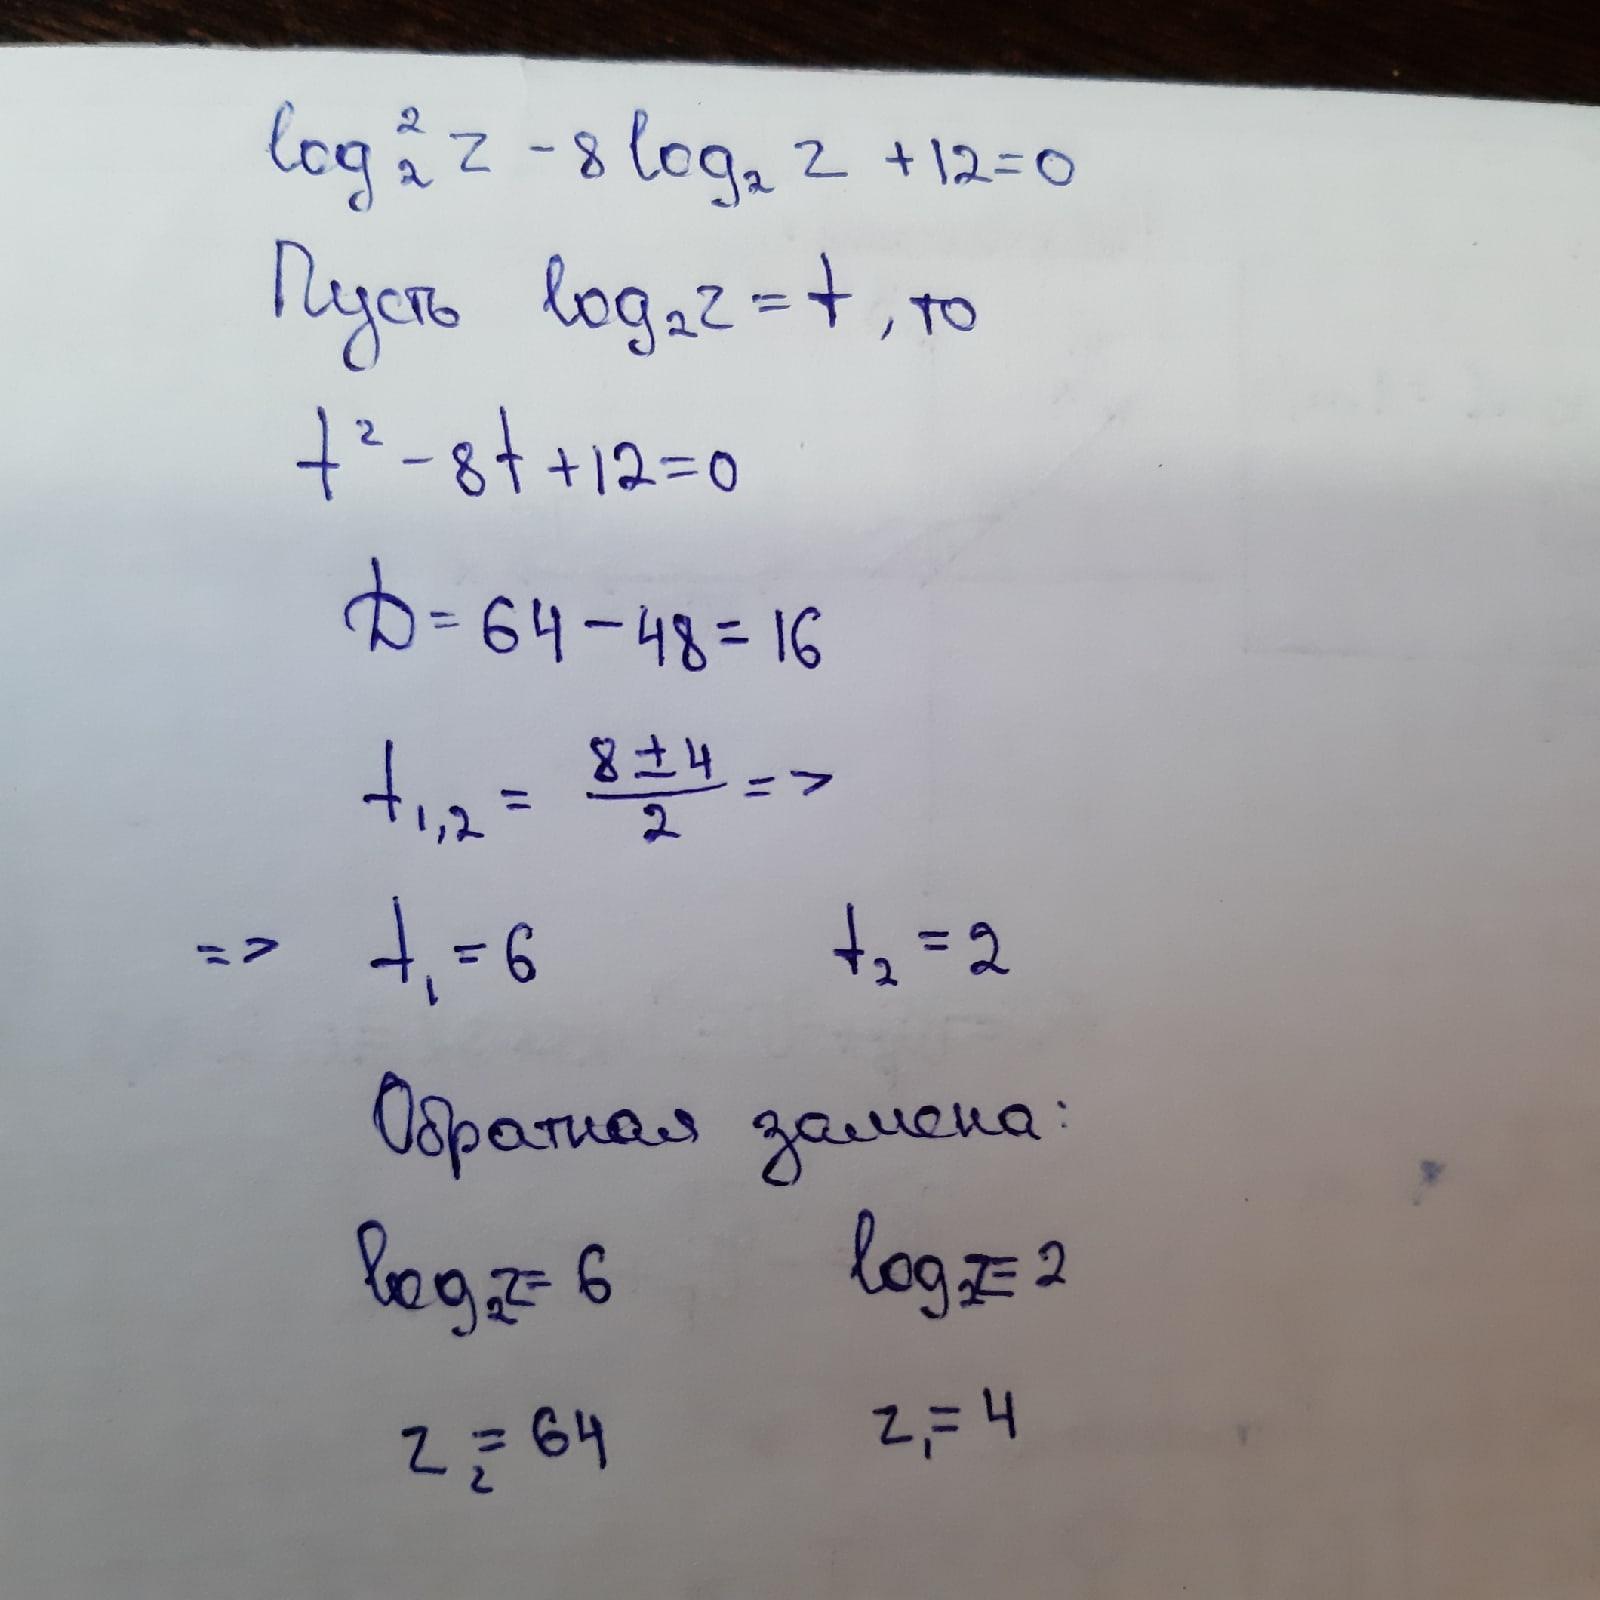 log₂² z - 8 log₂ z + 12 = 0
Пусть log₂ z = t, то
t² - 8t + 12 = 0
D = 64 - 48 = 16
t₁,₂ = (8 ± 4)/2 =>
=> t₁ = 6 t₂ = 2
Обратная замена:
log₂ z = 6 log₂ z = 2
z₂ = 64 z₁ = 4